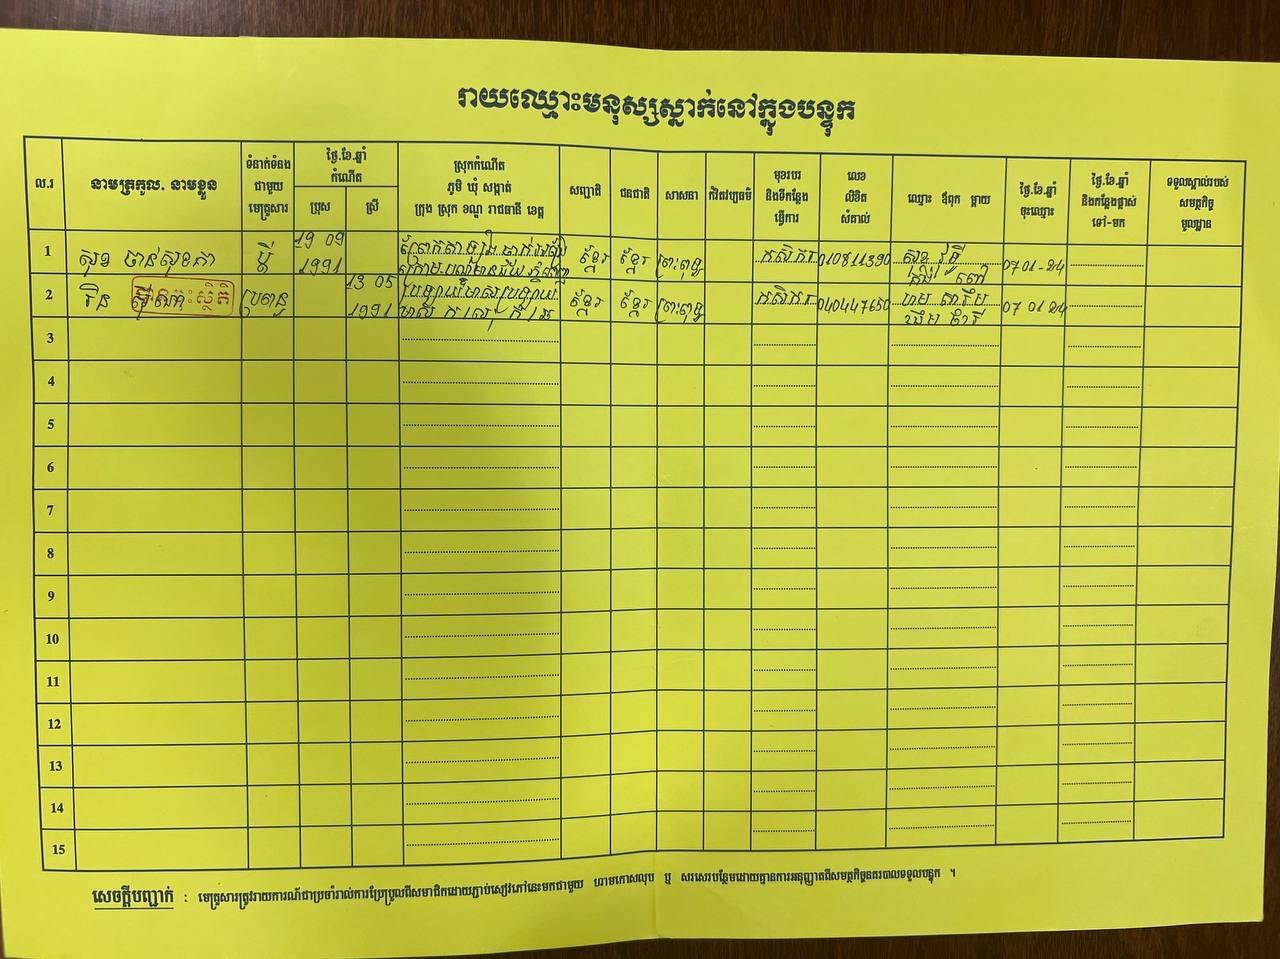 រាយឈ្មោះមនុស្សស្នាក់នៅក្នុងបន្ទុក
ល.រ
នាមត្រកូល. នាមខ្លួន
ទំនាក់ទំនង
ជាមួយ
មេគ្រួសារ
ថ្ងៃ.ខែ.ឆ្នាំ
កំណើត
ប្រុស
ស្រី
ស្រុកកំណើត
ភូមិ ឃុំ សង្កាត់
ក្រុង ស្រុក ខណ្ឌ រាជធានី ខេត្ត
សញ្ជាតិ
ជនជាតិ
សាសនា
កំរិតវប្បធម៌
មុខរបរ
និងទីកន្លែង
ធ្វើការ
លេខ
លិខិត
សំគាល់
ឈ្មោះ ឪពុក ម្តាយ
ថ្ងៃ.ខែ.ឆ្នាំ
ចុះឈ្មោះ
ថ្ងៃ.ខែ.ឆ្នាំ
និងកន្លែងផ្លាស់
ទៅ-មក
ទទួលស្គាល់របស់
សមត្ថកិច្ច
មូលដ្ឋាន
1
សុខ ចាន់សុខភា
ប្តី
19 09
1991
ខ្មែរ
ខ្មែរ
ព្រះពុទ្ធ
កសិករ
010811390
សុខ
07 01-24
2
រិន
ប្រពន្ធ
13 05
1991
ខ្មែរ
ខ្មែរ
ព្រះពុទ្ធ
កសិករ
040447650
07 01 24
3
4
5
6
7
8
9
10
11
12
13
14
15
សេចក្តីបញ្ជាក់ : មេគ្រួសារត្រូវរាយការណ៍ជាប្រចាំរាល់ការប្រែប្រួលពីសមាជិកដោយភ្ជាប់សៀវភៅនេះមកជាមួយ ហាមកោសលុប ឬ សរសេរបន្ថែមដោយគ្មានការអនុញ្ញាតពីសមត្ថកិច្ចនគរបាលទទួលបន្ទុក ។